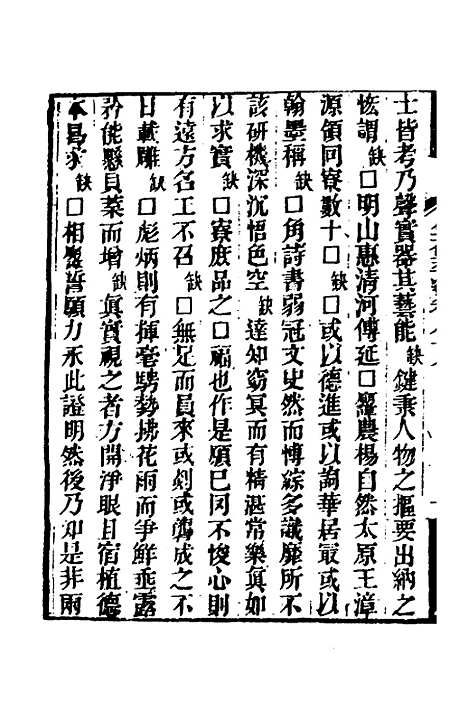 士皆考乃聲實器其藝能缺鍵秉人物之摳要出納之
恢謂缺□明山惠清河傅延□隴農楊自然太原王漳
源領同寮數十□□或以德進或以詢華居最或以
翰墨稱缺□角詩書弱冠文史然而博綜多識靡所不
該研機深沉悟色空缺達知窈冥而有精湛常樂眞如
以求實缺□寮庶品之□福也作是願已因不悛心則
有遠方名工不召缺□無足而員來或剡或鐫成之不
日載雕缺□彪炳則有揮毫騁勢拂花雨而爭鮮垂露
矜能懸貝葉而增缺眞實視之者方開淨眼目宿植德
本昌求缺□相與誓願力承此證明然後乃知是非雨